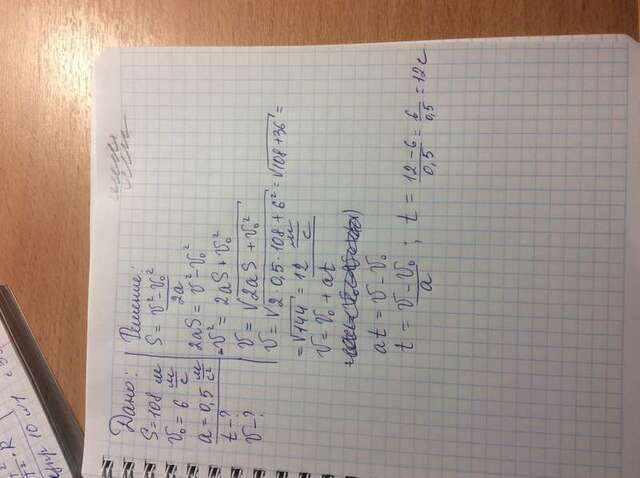 упр 10 №1
Дано:
S = 108 м
V₀ = 6 м/с
a = 0,5 м/с²
t - ?
V - ?
Решение:
S = (V² - V₀²)/2a
2aS = V² - V₀²
-V² = 2aS + V₀²
V = √(2aS + V₀²)
V = √(2 · 0,5 · 108 + 6²) = √(108 + 36) =
= √144 = 12 м/с
V = V₀ + at
at = V - V₀
t = (V - V₀)/a ; t = (12 - 6)/0,5 = 6/0,5 = 12 с